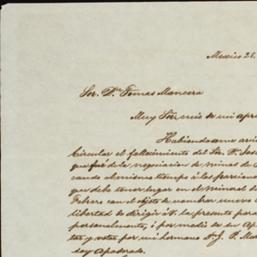 Mexico 21.
Sor. Dn. Tomas Mancera
Muy Sor mio de mi apre
Habiendome
Circular el fallecimiento del Sor. D.
que fué de la negociacion de minas de
cando al mismo tiempo á los
que debe tener lugar en el Mineral de
Febrero con el objeto de nombrar nuevo
libertad de dirigir á V. la presente para
personalmente, ó por medio de su Ap
tar y votar por mi hermano
doy Apoderado.